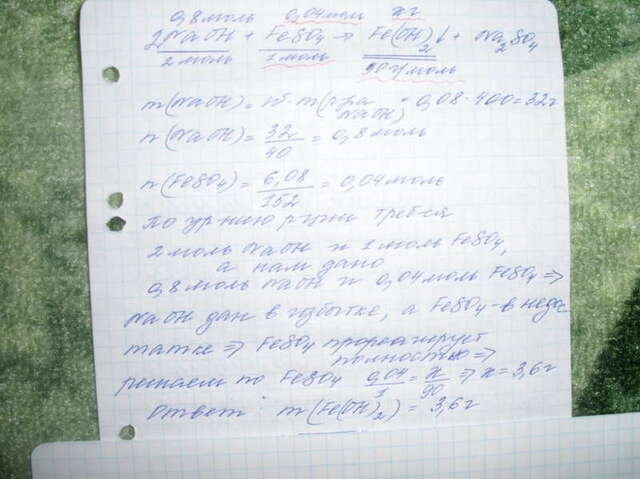 0,8моль 0,04моль xг
2NaOH + FeSO₄ → Fe(OH)₂↓ + Na₂SO₄
2моль 1моль 90г/моль
m(NaOH) = w · m(р-ра NaOH) = 0,08 · 400 = 32г
n(NaOH) = 32/40 = 0,8моль
n(FeSO₄) = 6,08/152 = 0,04моль
по ур-нию р-ции треб-ся
2моль NaOH и 1моль FeSO₄,
а нам дано
0,8моль NaOH и 0,04моль FeSO₄ ⇒
NaOH дан в избытке, а FeSO₄ - в недос
татке ⇒ FeSO₄ прореагирует
полностью ⇒
решаем по FeSO₄ 0,04/1 = x/90 ⇒ x = 3,6г
Ответ: m(Fe(OH)₂) = 3,6г